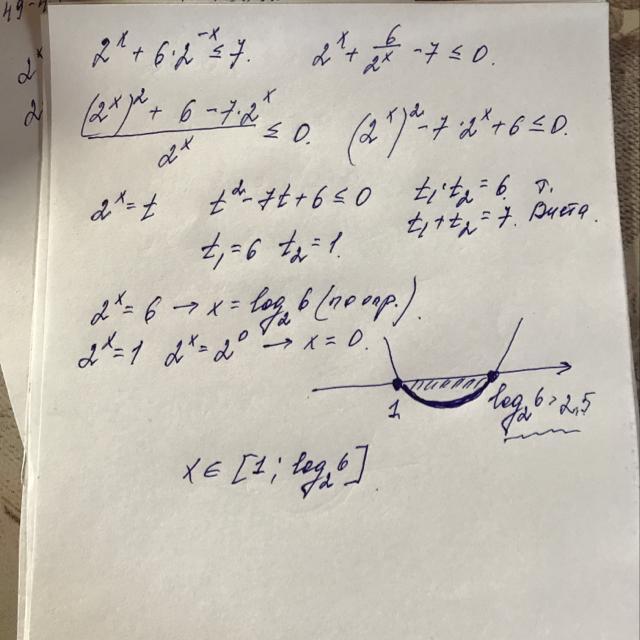 49-
2ˣ
2
2ˣ + 6·2⁻ˣ ≤ 7. 2ˣ + 6/2ˣ - 7 ≤ 0.
((2ˣ)² + 6 - 7·2ˣ)/2ˣ ≤ 0. (2ˣ)² - 7·2ˣ + 6 ≤ 0.
2ˣ = t t² - 7t + 6 ≤ 0 t₁·t₂ = 6 т.
t₁ + t₂ = 7. Виета.
t₁ = 6 t₂ = 1.
2ˣ = 6 → x = log₂6 (по опр.).
2ˣ = 1 2ˣ = 2⁰ → x = 0.
1 log₂6 > 2,5
x ∈ [1; log₂6]